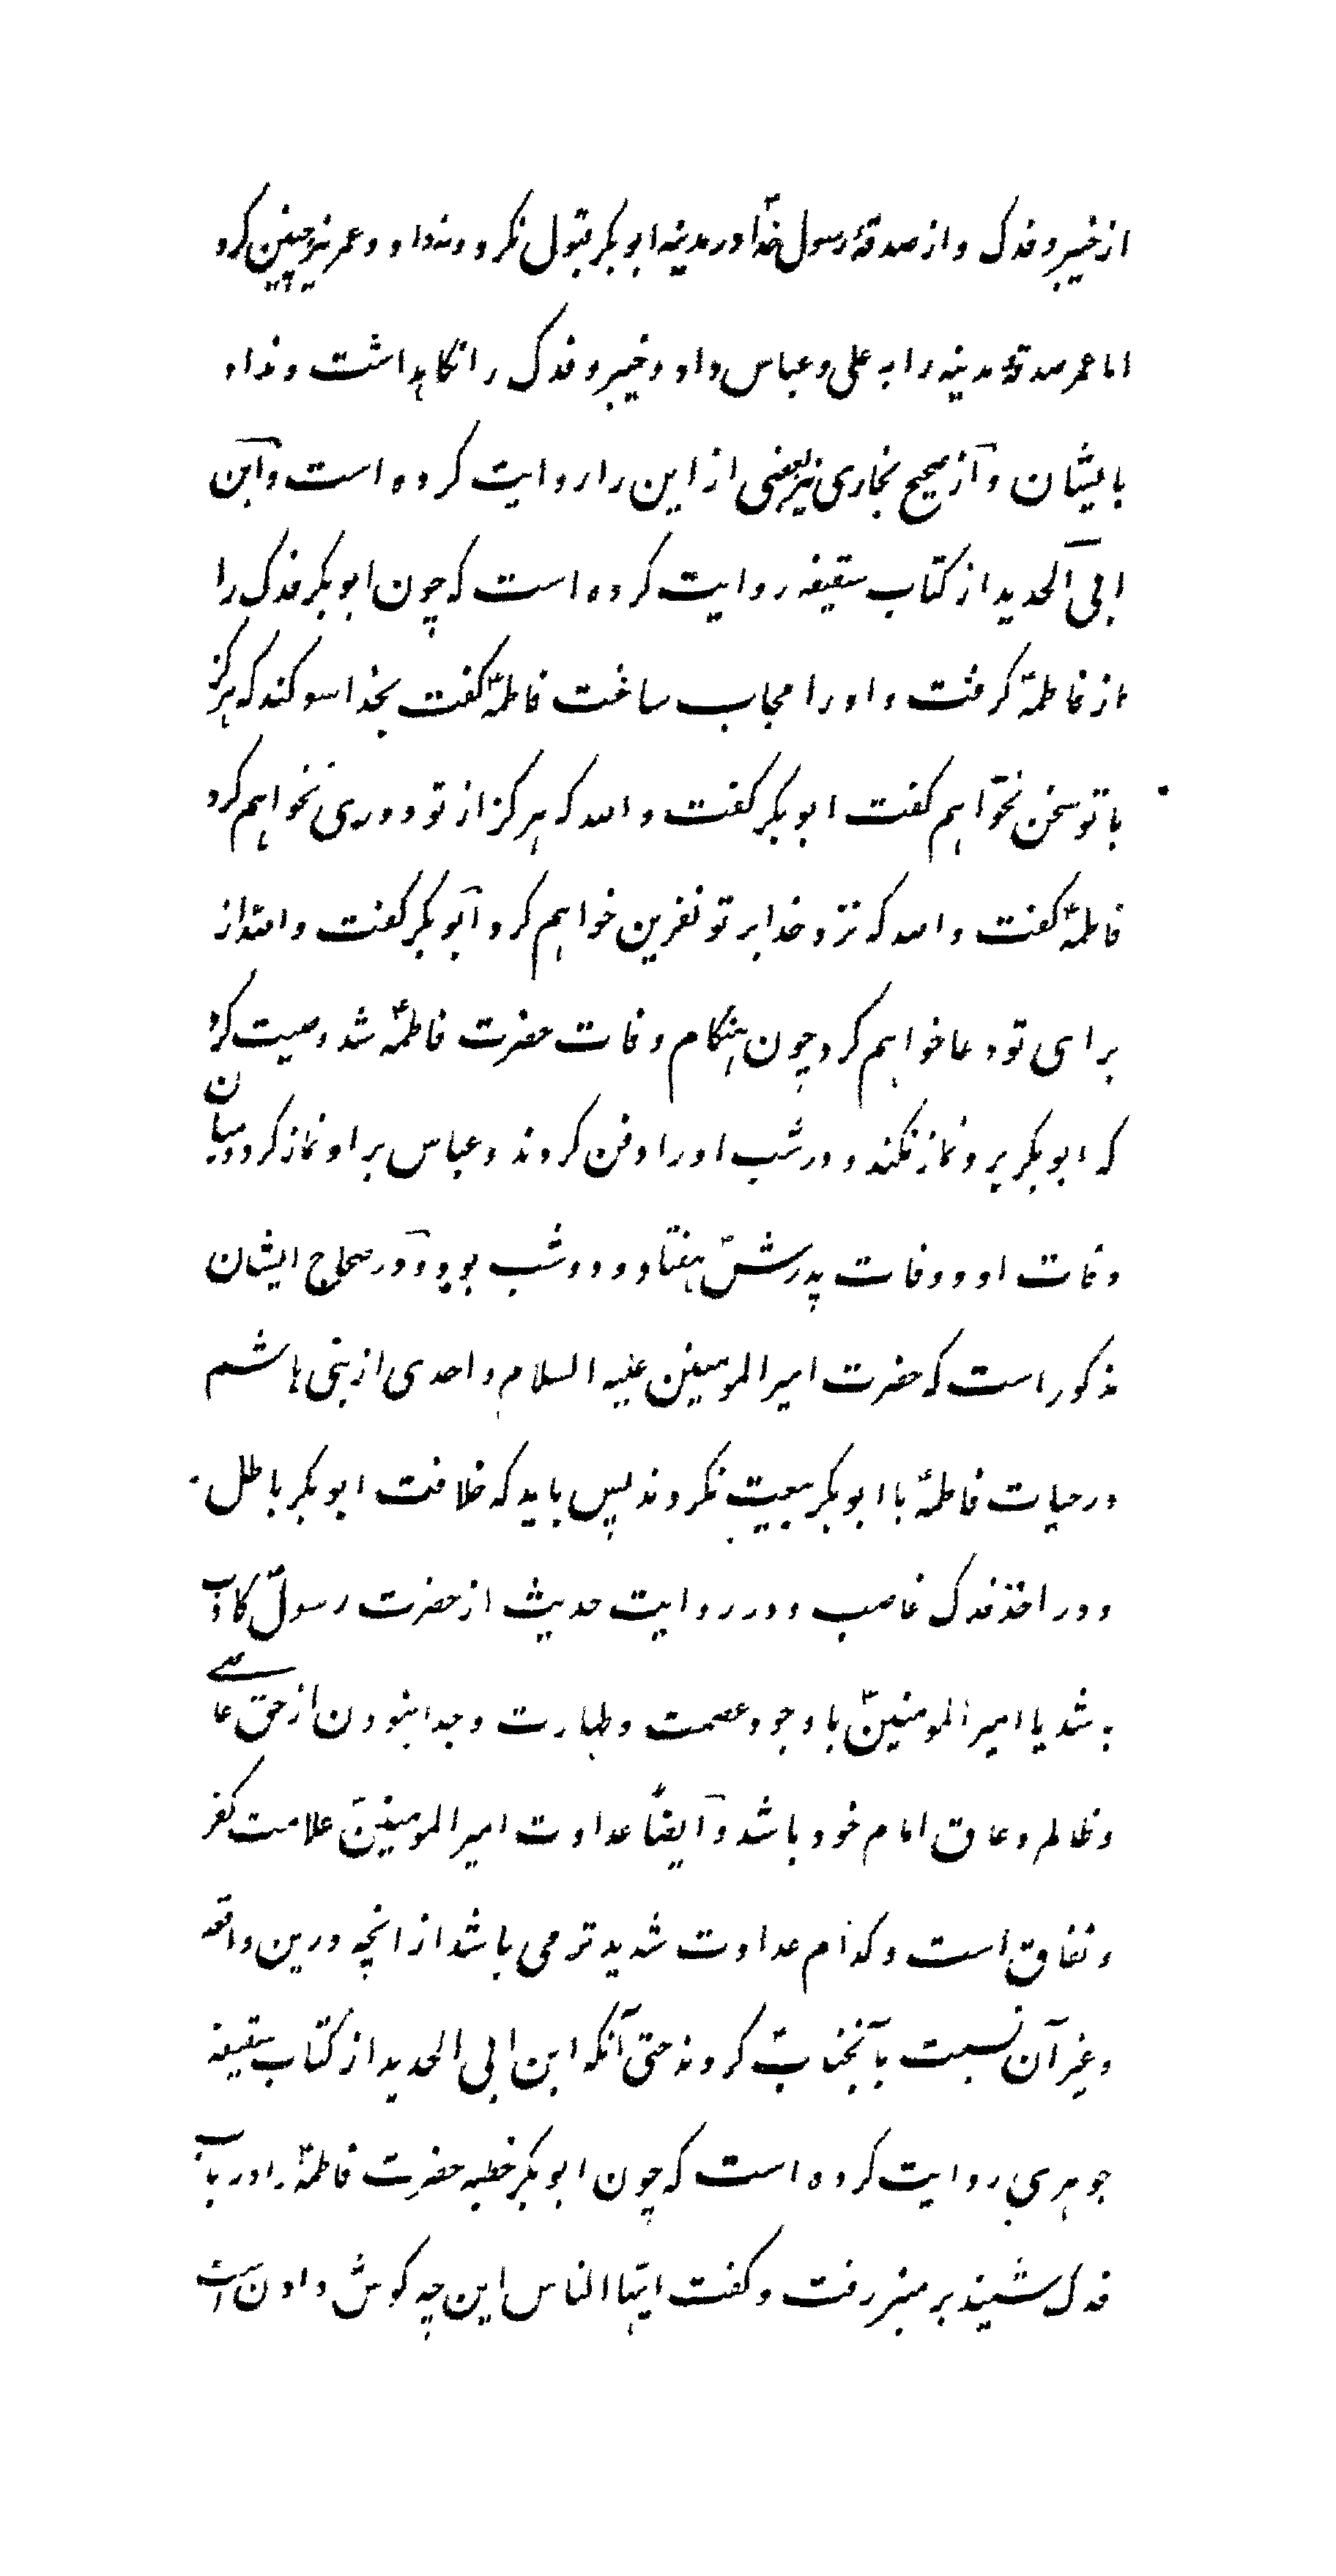 از خیبر و فدک و از صدقهٔ رسول خداؐ در مدینه ابوبکر قبول نکرد و نداد و عمر نیز چنین کرد
اما عمر صدقهٔ مدینه را به علی و عباس داد و خیبر و فدک را نکاهداشت و نداد
بایشان و از صحیح بخاری نیز بعضی از این را روایت کرده است و ابن
ابی الحدید از کتاب سقیفه روایت کرده است که چون ابوبکر فدک را
از فاطمهؑ کرفت و او را مجاب ساخت فاطمهؑ کفت بخدا سوکند که هرکز
با تو سخن نخواهم کفت ابوبکر کفت والله که هرکز از تو دوری نخواهم کرد
فاطمهؑ کفت والله که نزد خدا بر تو نفرین خواهم کرد ابوبکر کفت والله از
برای تو دعا خواهم کرد چون هنکام وفات حضرت فاطمهؑ شد وصیت کرد
که ابوبکر برو نماز نکند و در شب او را دفن کردند و عباس بر او نماز کرد و میان
وفات او و وفات پدرشؐ هفتاد و دو شب بود و در صحاح ایشان
مذکور است که حضرت امیرالمومنین علیه السلام و احدی از بنی هاشم
در حیات فاطمهؑ با ابوبکر بیعت نکردند پس باید که خلافت ابوبکر باطل
و در اخذ فدک غاصب و در روایت حدیث از حضرت رسولؐ کاذب
باشد یا امیرالمومنینؑ با وجود عصمت و طهارت و جدا نبودن از حق عاصی
و ظالم و عاق امام خود باشد و ایضاً عداوت امیرالمومنینؑ علامت کفر
و نفاق است و کدام عداوت شدیدتر می باشد از انچه درین واقعه
و غیر آن نسبت بآنجنابؑ کردند حتی آنکه ابن ابی الحدید از کتاب سقیفه
جوهری روایت کرده است که چون ابوبکر خطبه حضرت فاطمهؑ را در باب
فدک شنید بر منبر رفت و کفت ایها الناس این چه کوش دادن است